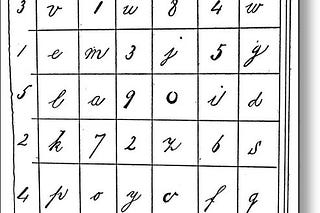 3 v 1 u 8 4 w
1 e m 3 j 5 g
5 l a 9 0 i d
2 k 7 2 z 6 s
4 p o y c f q